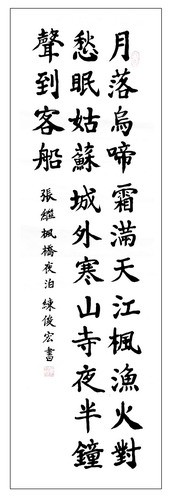 月落烏啼霜滿天江楓漁火對
愁眠姑蘇城外寒山寺夜半鐘
聲到客船
張繼楓橋夜泊 練俊宏書